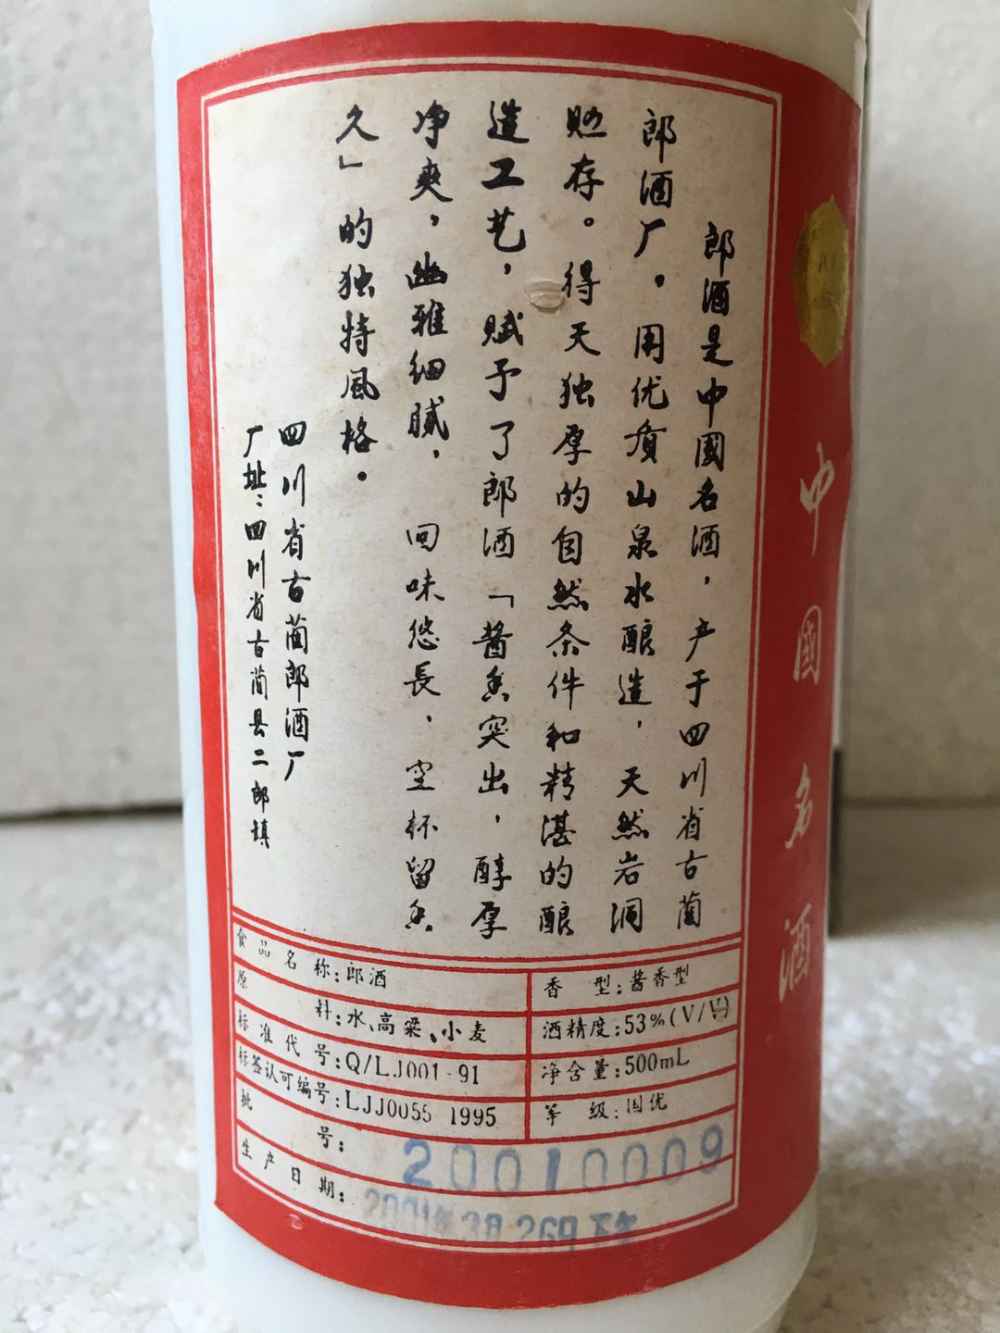 郎酒是中國名酒，产于四川省古蔺
郎酒厂。用优质山泉水酿造，天然岩洞
贮存。得天独厚的自然条件和精湛的酿
造工艺，赋予了郎酒「酱香突出，醇厚
净爽，幽雅细腻，回味悠長，空杯留香
久」的独特風格。
四川省古蔺郎酒厂
厂址：四川省古蔺县二郎镇
食品名称：郎酒
香型：酱香型
原料：水、高粱、小麦
酒精度：53%(V/V)
标准代号：Q/LJ001-91
净含量：500mL
标签认可编号：LJJ0055 1995
等级：国优
批号：20010009
生产日期：2001年3月26日下午
中國名酒